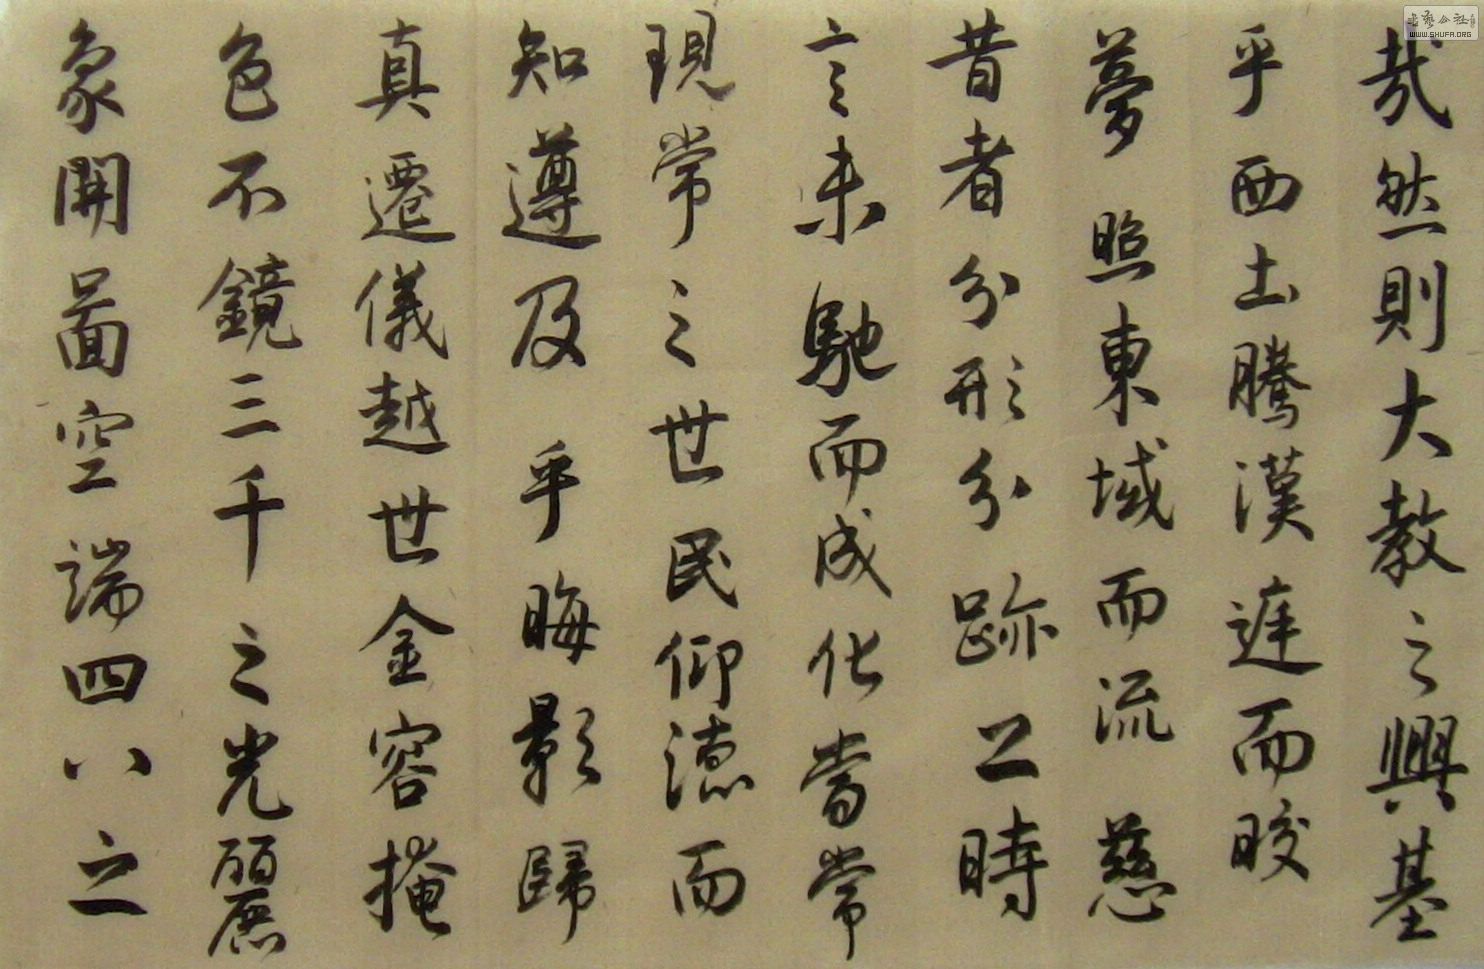 哉然則大教之興基
乎西土騰漢庭而皎
夢照東域而流慈
昔者分形分跡之時
言未馳而成化當常
現常之世民仰德而
知遵及乎晦影歸
真遷儀越世金容掩
色不鏡三千之光麗
象開圖空端四八之
WWW.SHUFA.ORG